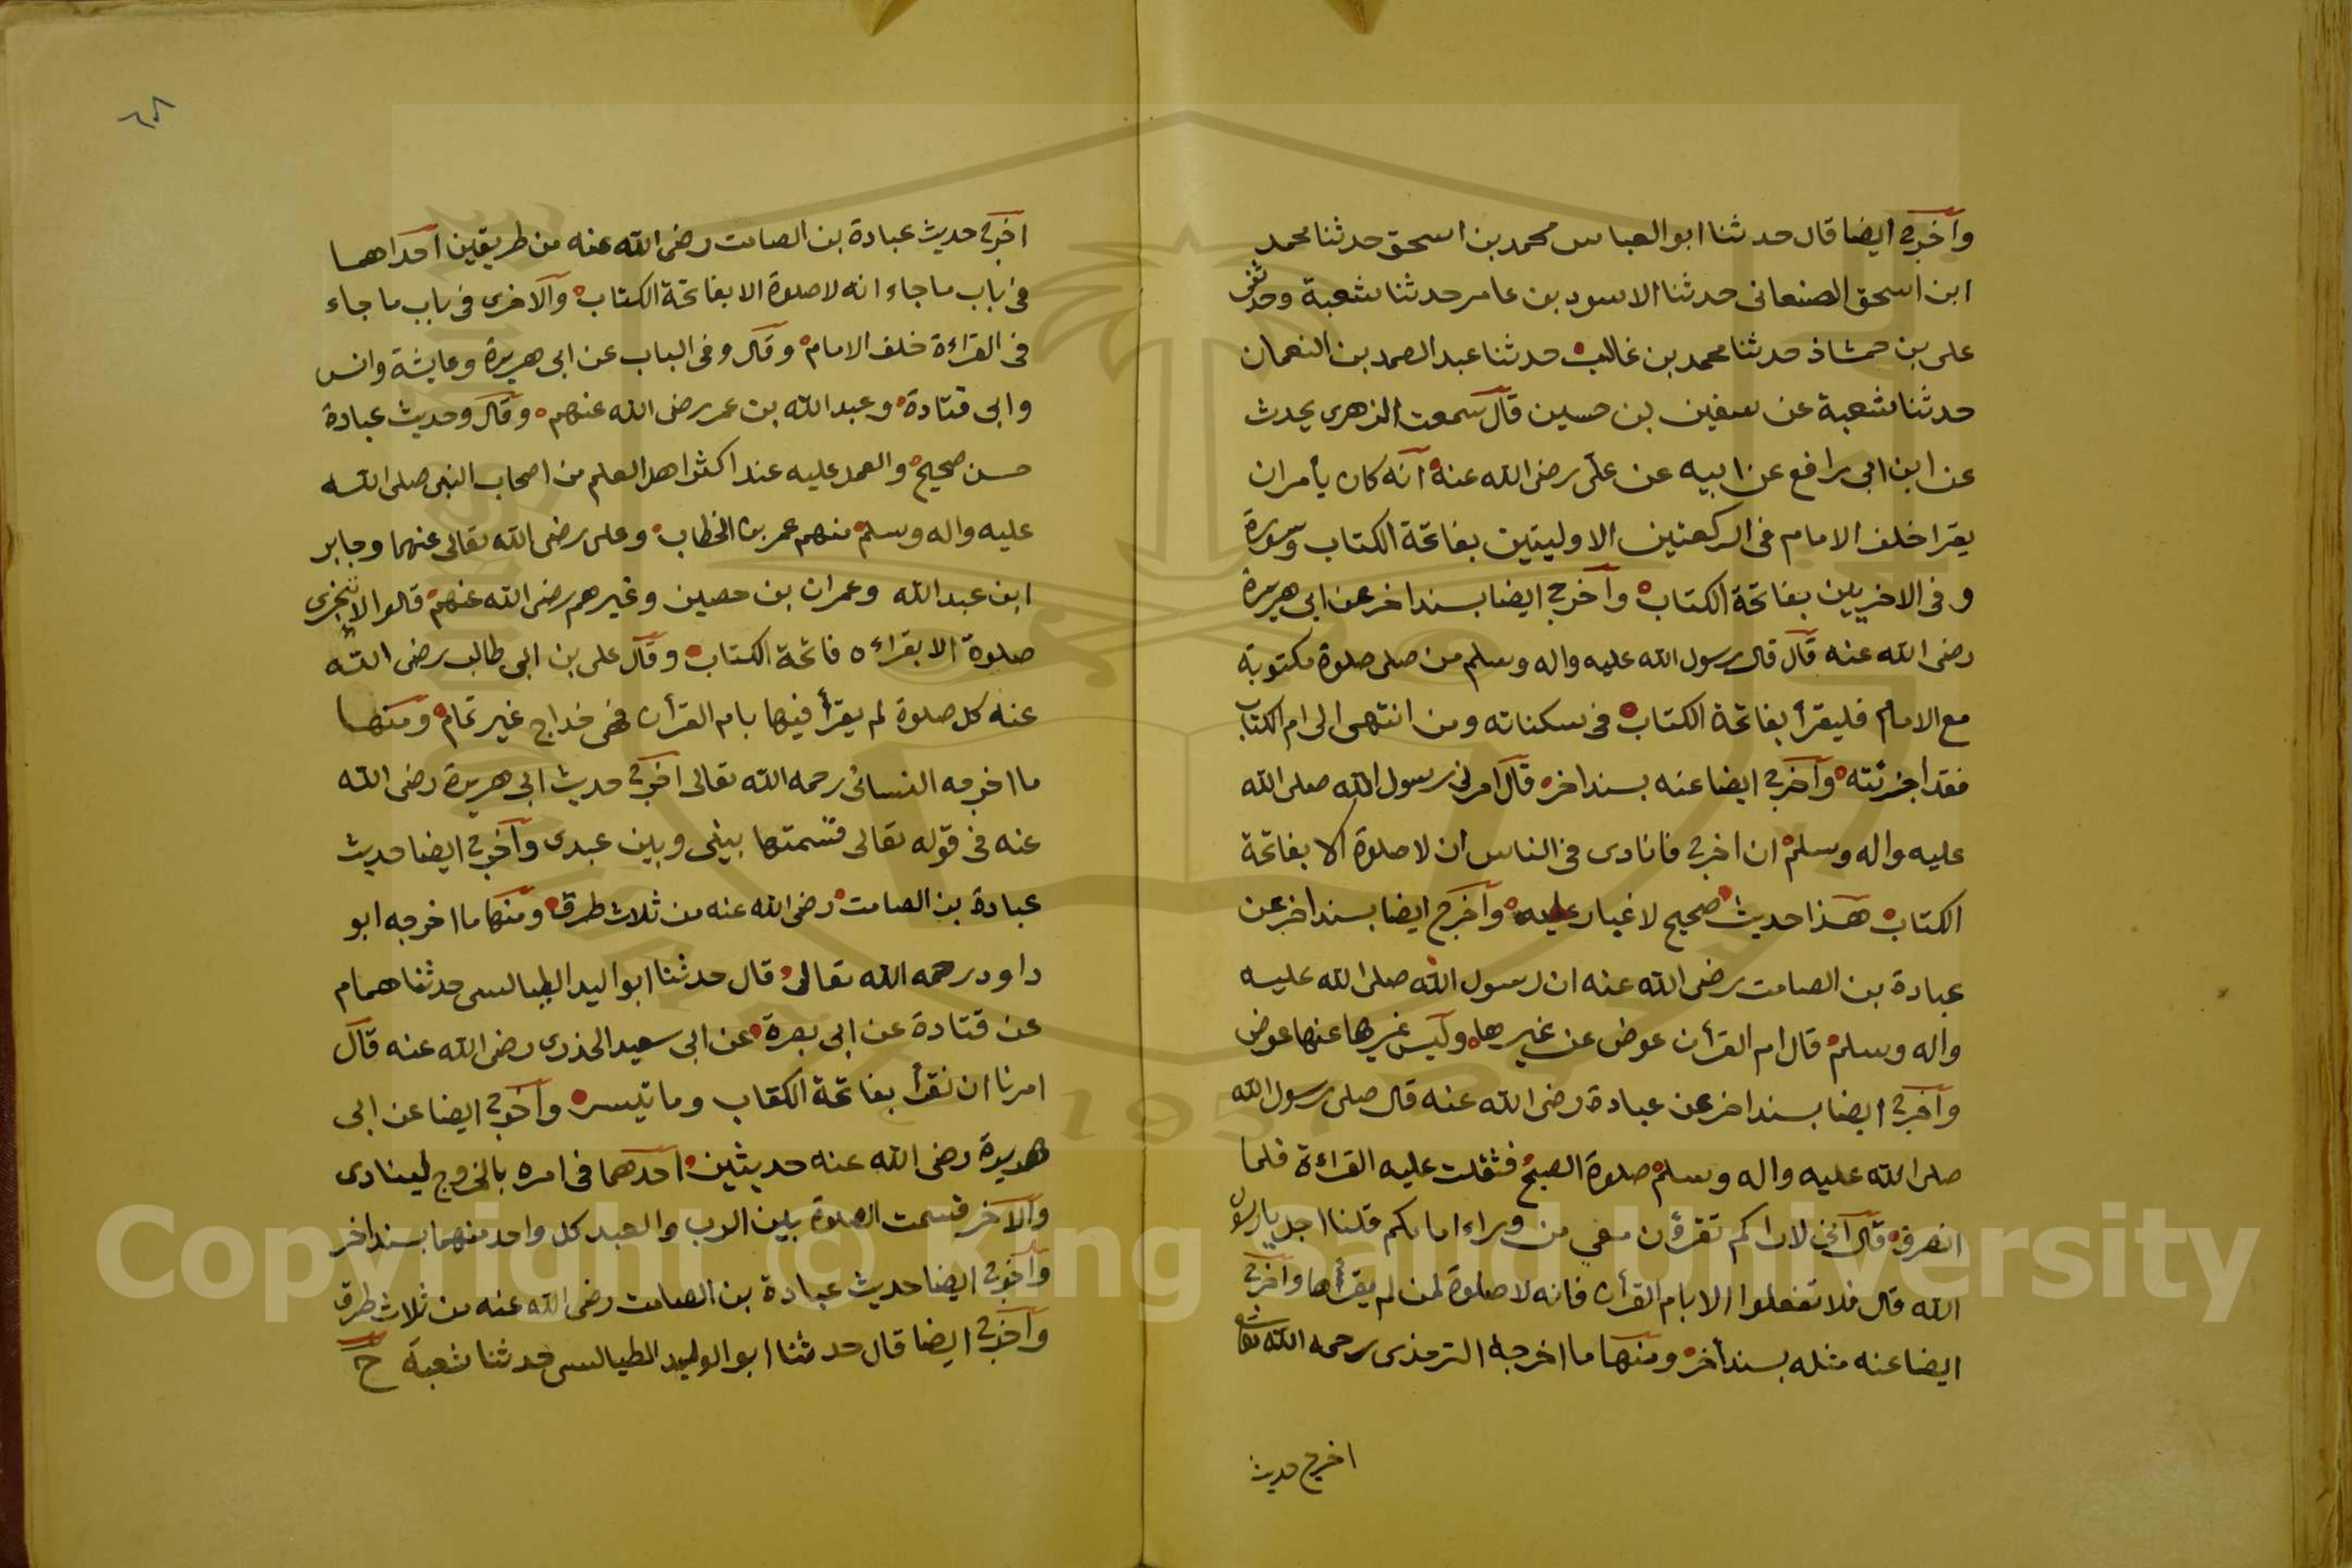 وآخرج ايضا قال حدثنا ابو العباس محمد بن اسحق حدثنا محمد
ابن اسحق الصنعانى حدثنا الاسود بن عامر حدثنا شعبة وحدثنى
على بن حمشاذ حدثنا محمد بن غالب حدثنا عبد الصمد بن النعمان
حدثنا شعبة عن سفين بن حسين قال سمعت الزهرى يحدث
عن ابن ابى رافع عن ابيه عن على رضى الله عنه انه كان يأمر ان
يقرا خلف الامام فى الركعتين الاوليتين بفاتحة الكتاب وسورة
وفى الاخريين بفاتحة الكتاب وآخرج ايضا بسند اخر عن ابى هريرة
رضى الله عنه قال قال رسول الله عليه واله وسلم من صلى صلوة مكتوبة
مع الامام فليقرأ بفاتحة الكتاب فى سكتاته ومن انتهى الى ام الكتاب
فقد اجزئته وآخرج ايضا عنه بسند اخر قال امرنى رسول الله صلى الله
عليه واله وسلم ان اخرج فانادى فى الناس ان لا صلوة الا بفاتحة
الكتاب هذا حديث صحيح لا غبار عليه وآخرج ايضا بسند اخر عن
عبادة بن الصامت رضى الله عنه ان رسول الله صلى الله عليه
واله وسلم قال ام القرأن عوض عن غيرها وليس غيرها عنها عوض
وآخرج ايضا بسند اخر عن عبادة رضى الله عنه قال صلى رسول الله
صلى الله عليه واله وسلم صلوة الصبح فثقلت عليه القراءة فلما
انصرف قال انى لاراكم تقرؤن معى من وراء امامكم قلنا اجل يا رسول
الله قال فلا تفعلوا الا بام القرأن فانه لا صلوة لمن لم يقرأها وآخرج
ايضا عنه مثله بسند اخر ومنها ما اخرجه الترمذى رحمه الله تعالى
اخرج حديث
اخرج حديث عبادة بن الصامت رضى الله عنه من طريقين احداهما
فى باب ما جاء انه لا صلوة الا بفاتحة الكتاب والاخرى فى باب ما جاء
فى القراءة خلف الامام وقال وفى الباب عن ابى هريرة وعايشة وانس
وابى قتادة وعبد الله بن عمر رضى الله عنهم وقال وحديث عبادة
حسن صحيح والعمل عليه عند اكثر اهل العلم من اصحاب النبى صلى الله
عليه واله وسلم منهم عمر بن الخطاب وعلى رضى الله تعالى عنهما وجابر
ابن عبد الله وعمران بن حصين وغيرهم رضى الله عنهم قالوا لا تجزى
صلوة الا بقراءة فاتحة الكتاب وقال على بن ابى طالب رضى الله
عنه كل صلوة لم يقرأ فيها بام القرأن فهى خداج غير تمام ومنها
ما اخرجه النسائى رحمه الله تعالى اخرج حديث ابى هريرة رضى الله
عنه فى قوله تعالى قسمتها بينى وبين عبدى وآخرج ايضا حديث
عبادة بن الصامت رضى الله عنه من ثلاث طرق ومنها ما اخرجه ابو
داود رحمه الله تعالى قال حدثنا ابو اليد الطيالسى حدثنا همام
عن قتادة عن ابى بصرة عن ابى سعيد الخذرى رضى الله عنه قال
امرنا ان نقرأ بفاتحة الكتاب وما تيسر وآخرج ايضا عن ابى
هريرة رضى الله عنه حديثين احدهما فى امره بالخروج لينادى
والآخر قسمت الصلوة بين الرب والعبد كل واحد منهما بسند اخر
وآخرج ايضا حديث عبادة بن الصامت رضى الله عنه من ثلاث طرق
وآخرج ايضا قال حدثنا ابو الوليد الطيالسى حدثنا شعبة ح
Copyright © King Saud University
1957